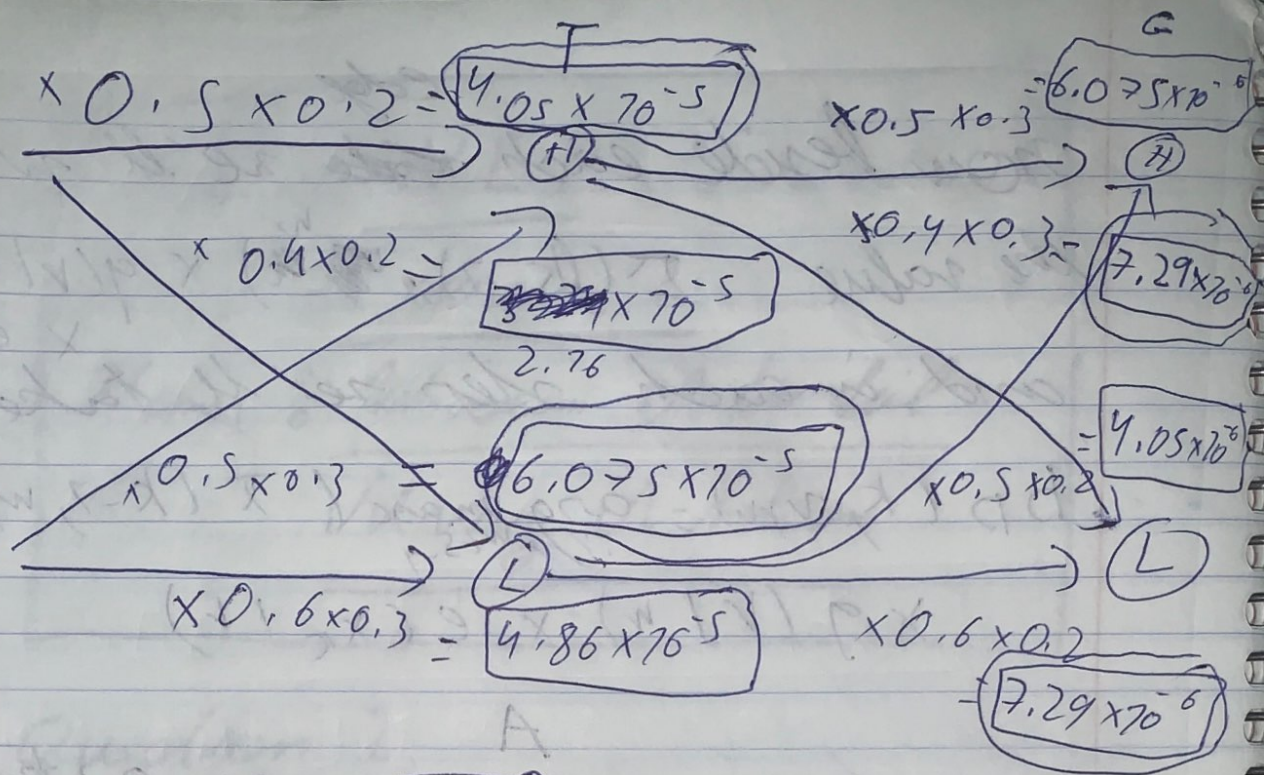 T
G
× 0.5 × 0.2 = 4.05 × 10⁻⁵
×0.5 ×0.3 = 6.075×10⁻⁶
H
H
× 0.4×0.2 =
×10⁻⁵
2.16
×0.4 ×0.3 = 7.29×10⁻⁶
×0.5 ×0.3 = 6.075×10⁻⁵
×0.5 ×0.2 = 4.05×10⁻⁶
L
L
×0.6×0.3 = 4.86×10⁻⁵
×0.6 ×0.2
= 7.29×10⁻⁶
A